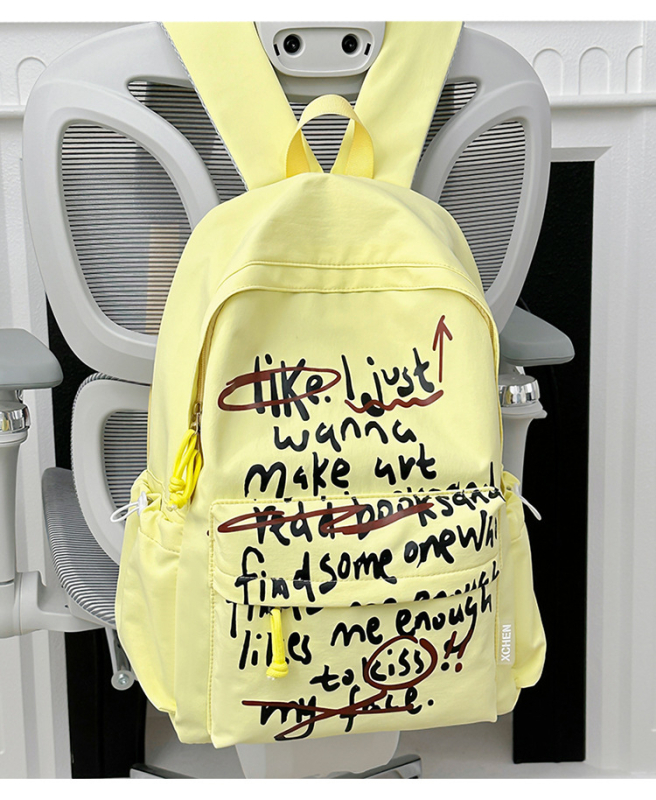 like. I just
wanna
make art
read books and
find some one who
likes me enough
to kiss!!
my face.
XCHEN